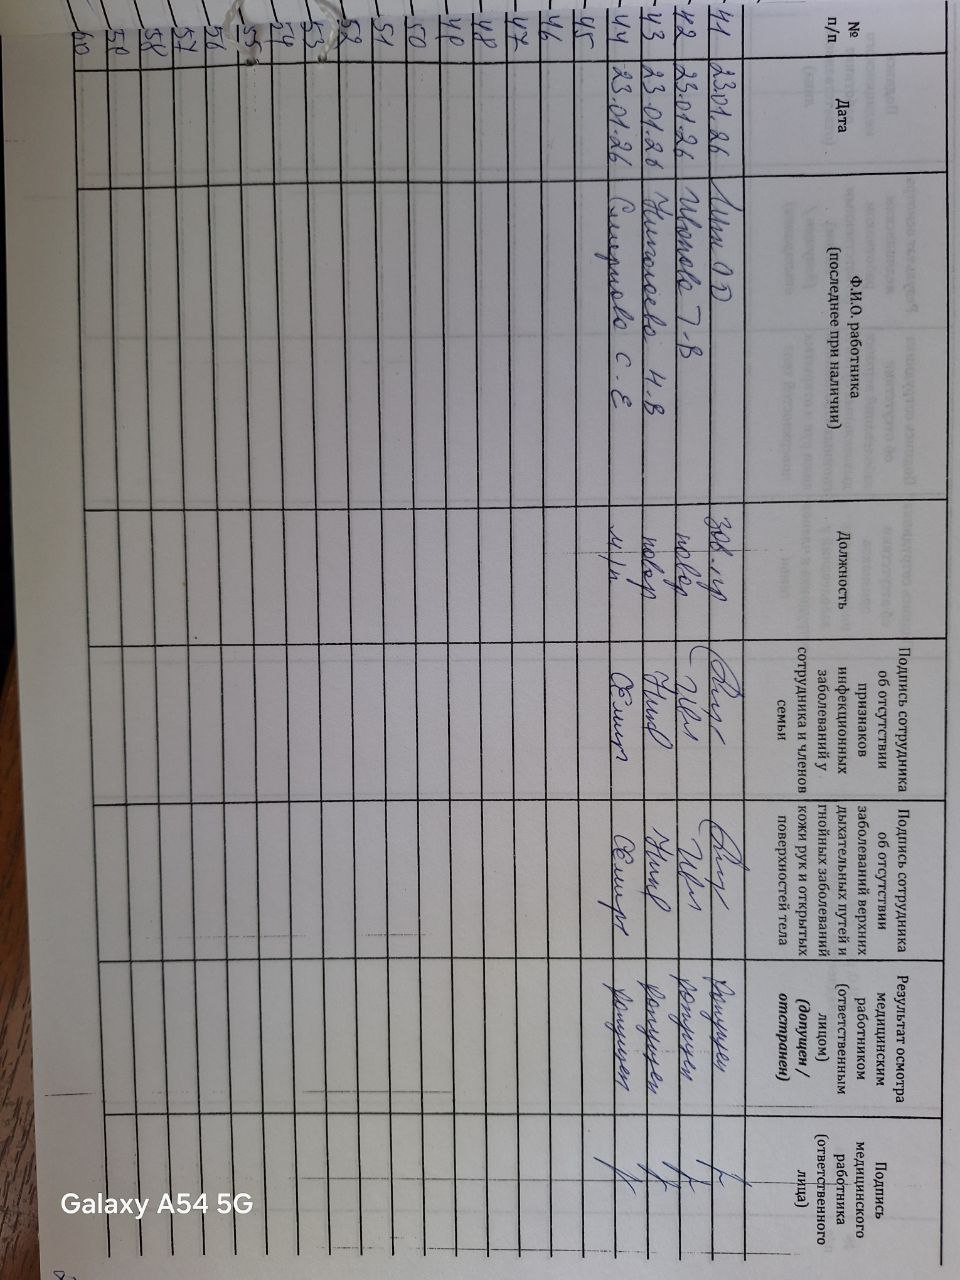 № п/п
Дата
Ф.И.О. работника
(последнее при наличии)
Должность
Подпись сотрудника
об отсутствии
признаков
инфекционных
заболеваний у
сотрудника и членов
семьи
Подпись сотрудника
об отсутствии
заболеваний верхних
дыхательных путей и
гнойных заболеваний
кожи рук и открытых
поверхностей тела
Результат осмотра
медицинским
работником
(ответственным
лицом)
(допущен /
отстранен)
Подпись
медицинского
работника
(ответственного
лица)
41 23.01.26 зав.пр допущен
42 23.01.26 Иванова Т.В повар допущен
43 23.01.26 Николаева Н.В повар допущен
44 23.01.26 Смирнова С.Е м/п допущен
45
46
47
48
49
50
51
52
53
54
55
56
57
58
59
60
Galaxy A54 5G